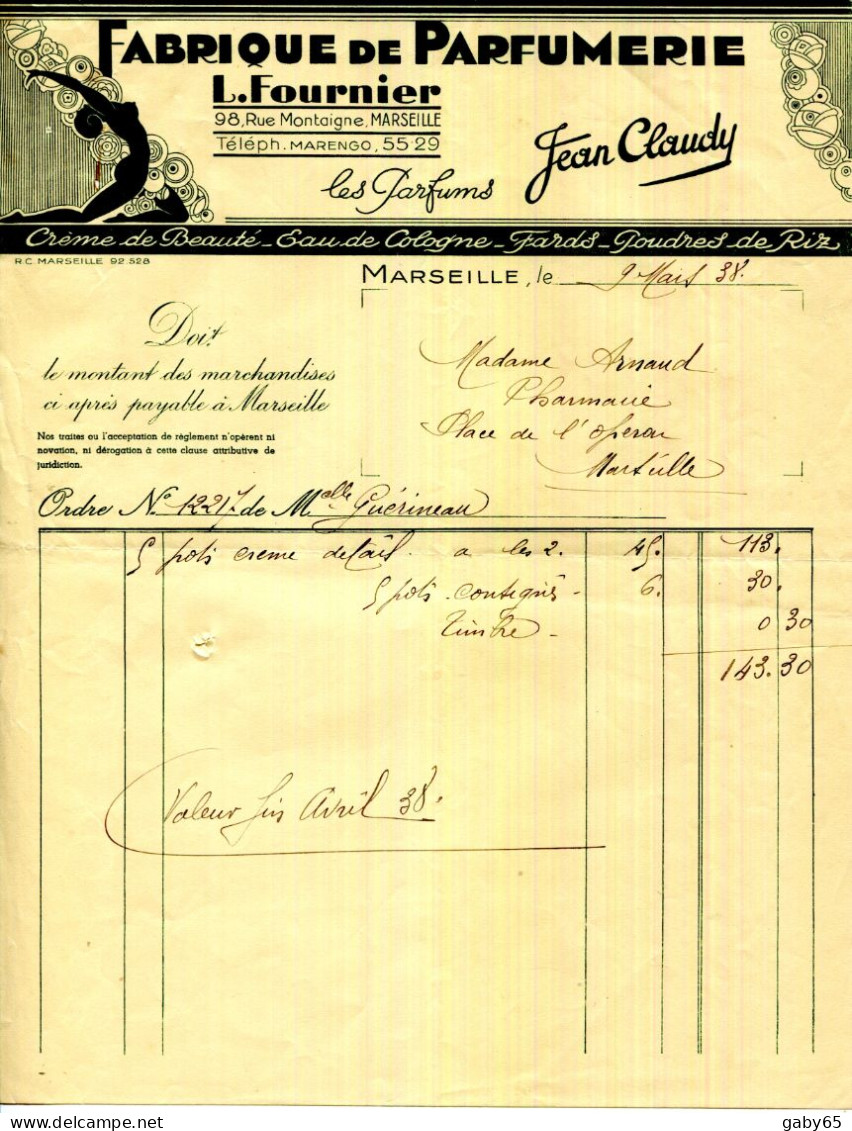 FABRIQUE DE PARFUMERIE
L. Fournier
98, Rue Montaigne, MARSEILLE
Téléph. MARENGO, 55 29
les Parfums
Jean Claudy
Crème de Beauté - Eau de Cologne - Fards - Poudres de Riz
R.C. MARSEILLE 92 528
MARSEILLE, le 9 Mars 38.
Doit
le montant des marchandises
ci après payable à Marseille
Nos traites ou l'acceptation de règlement n'opèrent ni
novation, ni dérogation à cette clause attributive de
juridiction.
Madame Arnaud
Pharmacie
Place de l'opéra
Marseille
Ordre No 12217 de Melle Guérineau
5 pots creme détail. a les 2. 45. 113.
5 pots consignés - 6. 30.
Timbre - 0 30
143. 30
Valeur fin Avril 38.
DELCAMPE.NET
gaby65